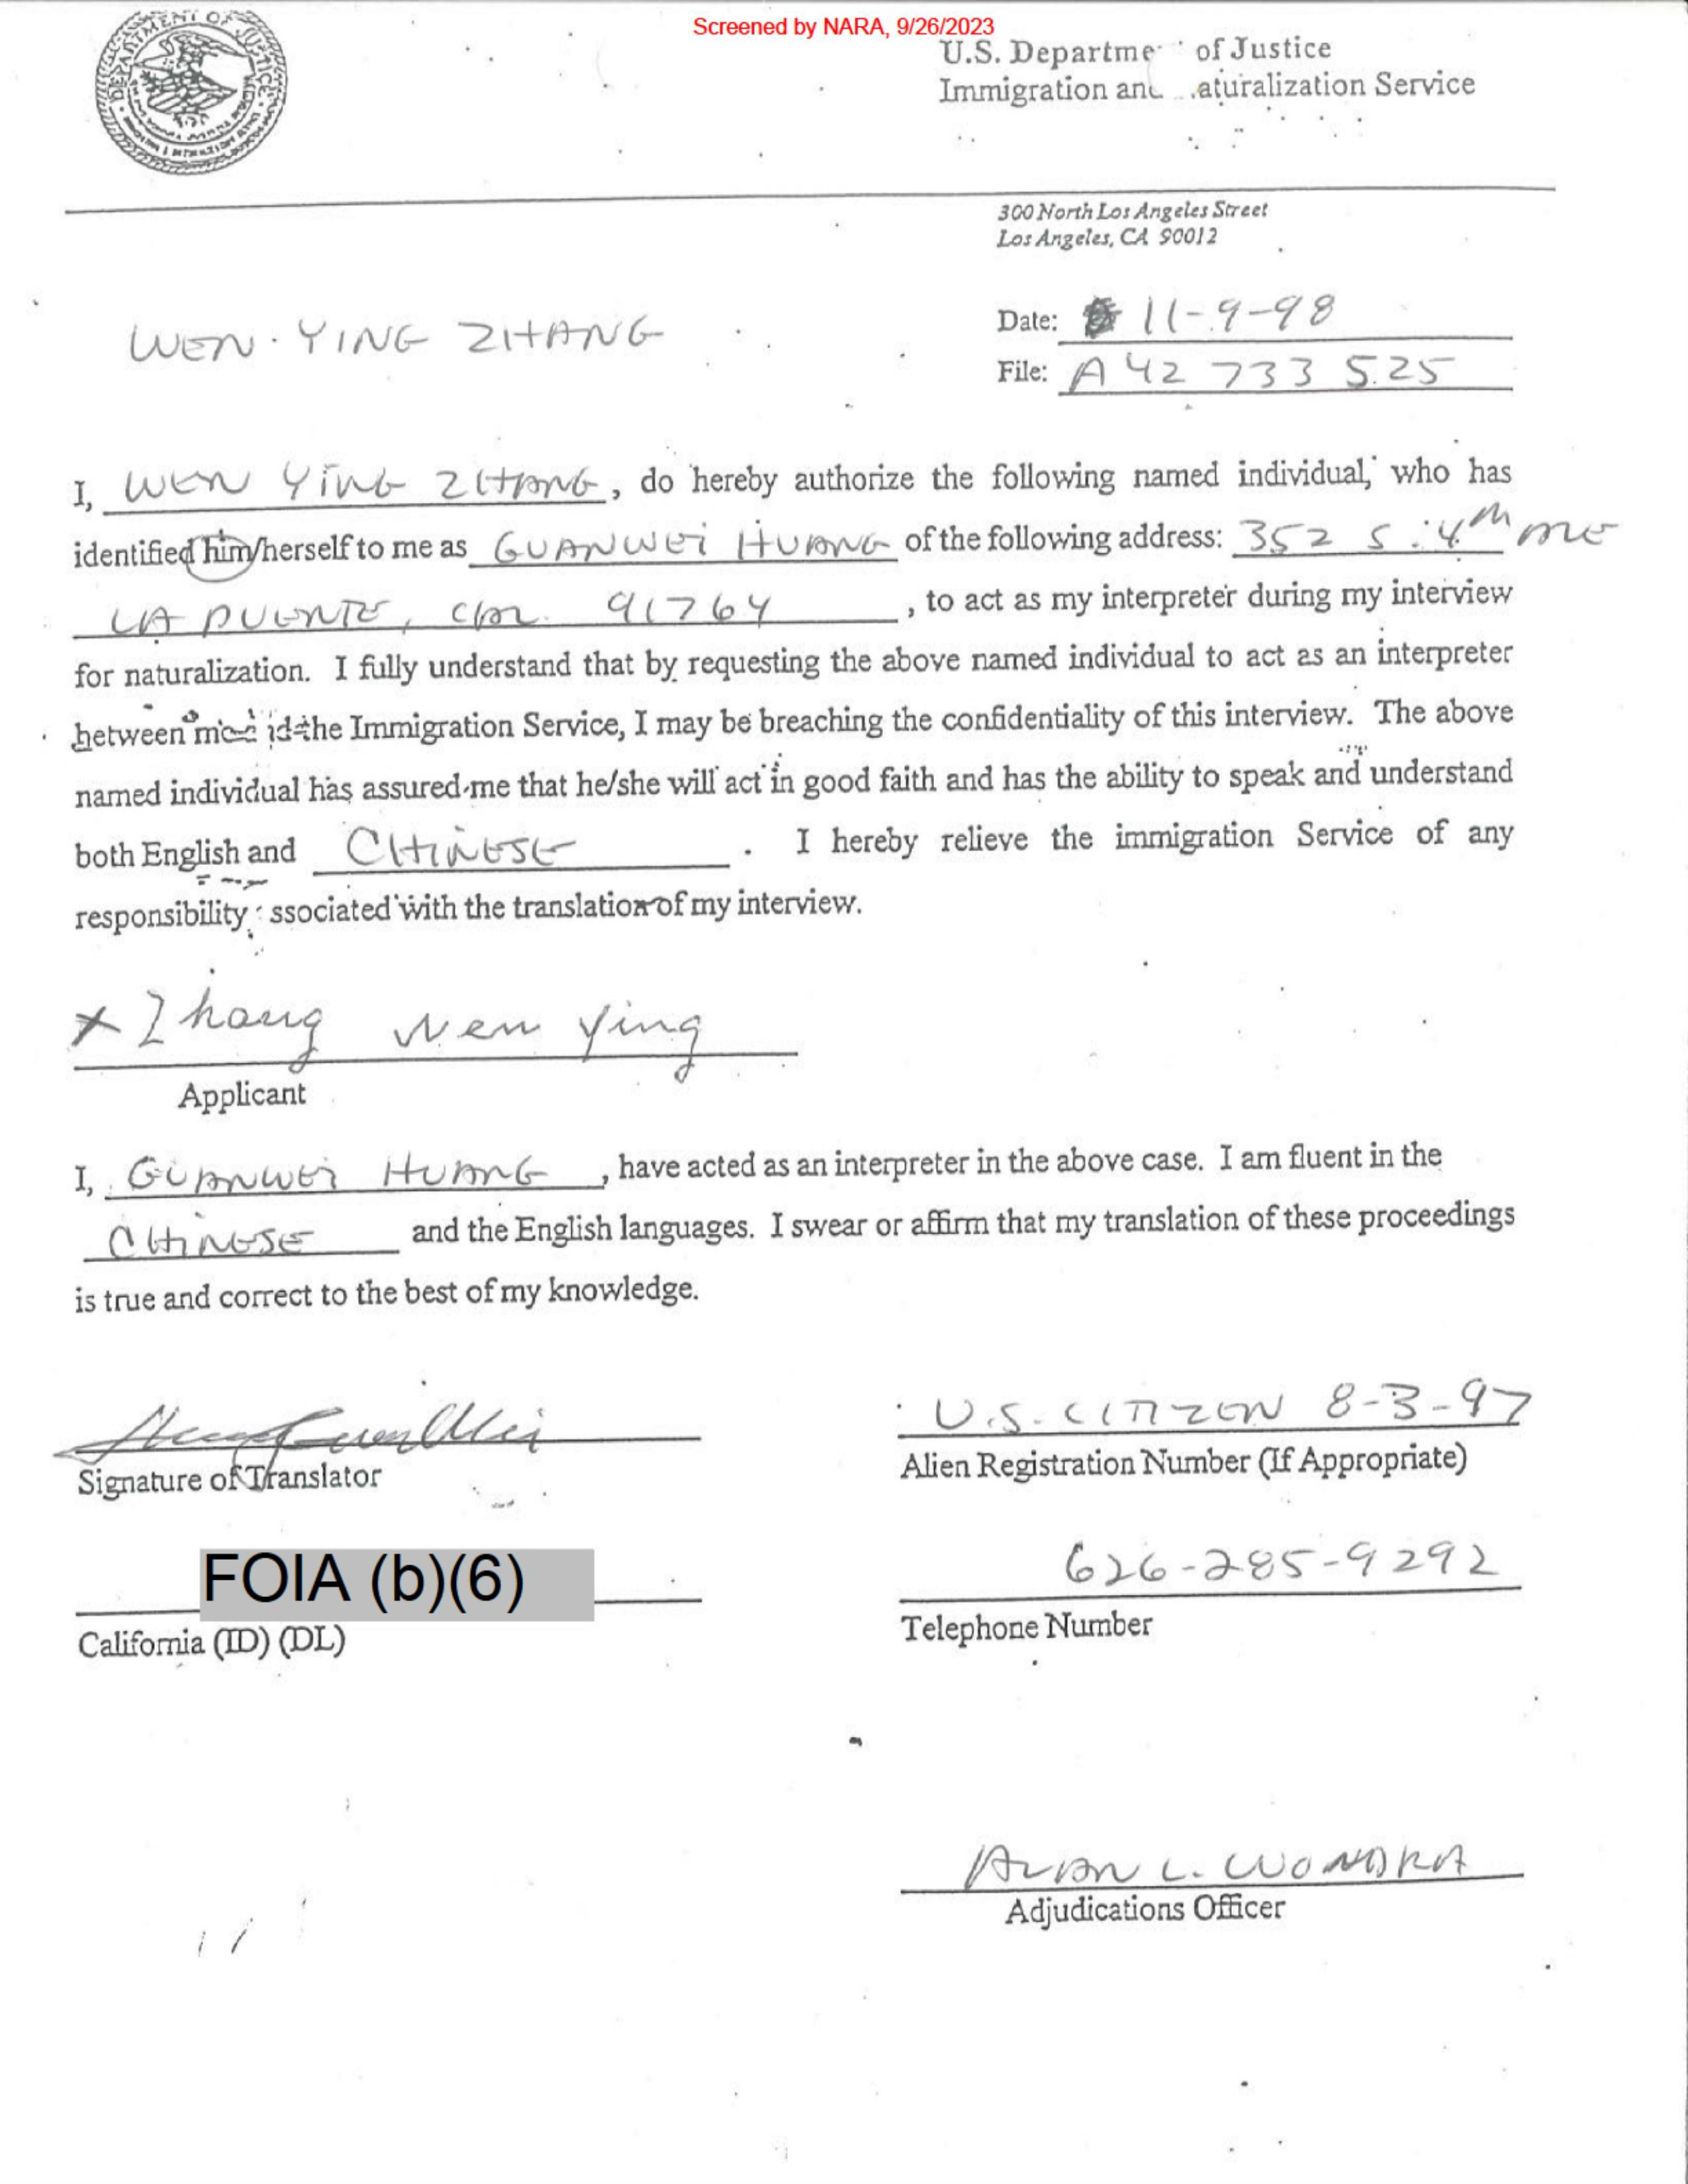 Screened by NARA, 9/26/2023
DEPARTMENT OF JUSTICE
U.S. Departme of Justice
Immigration and aturalization Service
300 North Los Angeles Street
Los Angeles, CA 90012
WEN-YING ZHANG
Date: 11-9-98
File: A 42 733 525
I, WEN YING ZHANG, do hereby authorize the following named individual, who has
identified him/herself to me as GUANWEI HUANG of the following address: 352 S. 4th AVE
LA PUENTE, CAL. 91764, to act as my interpreter during my interview
for naturalization. I fully understand that by requesting the above named individual to act as an interpreter
between the Immigration Service, I may be breaching the confidentiality of this interview. The above
named individual has assured me that he/she will act in good faith and has the ability to speak and understand
both English and CHINESE. I hereby relieve the immigration Service of any
responsibility ssociated with the translation of my interview.
x Zhang Wen Ying
Applicant
I, GUANWEI HUANG, have acted as an interpreter in the above case. I am fluent in the
CHINESE and the English languages. I swear or affirm that my translation of these proceedings
is true and correct to the best of my knowledge.
U.S. CITIZEN 8-3-97
Signature of Translator
Alien Registration Number (If Appropriate)
FOIA (b)(6)
626-285-9292
California (ID) (DL)
Telephone Number
ALAN L. WONDRA
Adjudications Officer